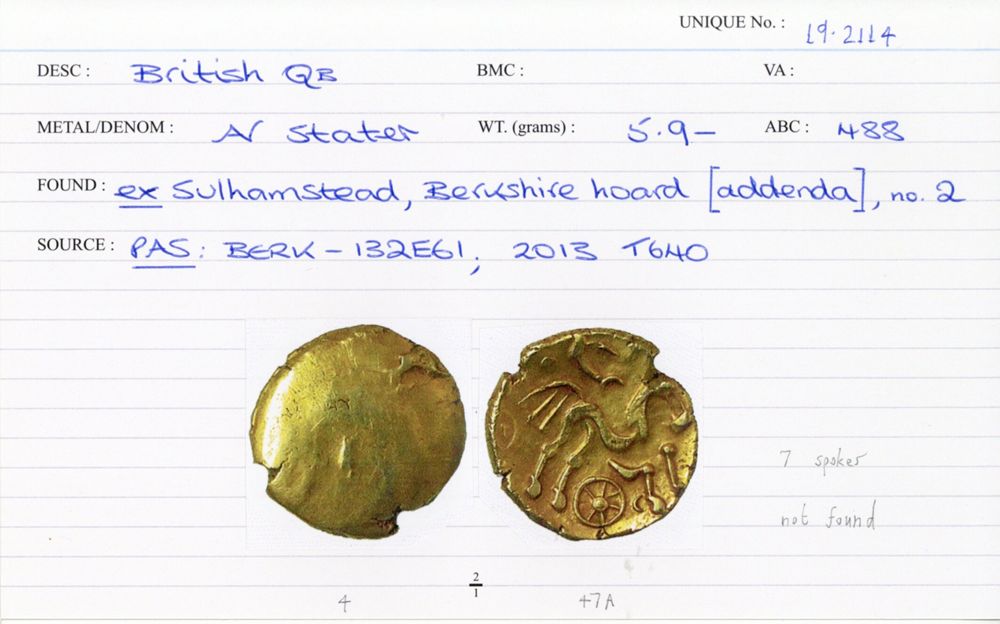 UNIQUE No. : 19.2114
DESC : British QB BMC : VA :
METAL/DENOM : AV Stater WT. (grams) : 5.9– ABC : 488
FOUND : ex Sulhamstead, Berkshire hoard [addenda], no. 2
SOURCE : PAS: BERK-132E61; 2013 T640
7 spokes
not found
2/1
4 47A